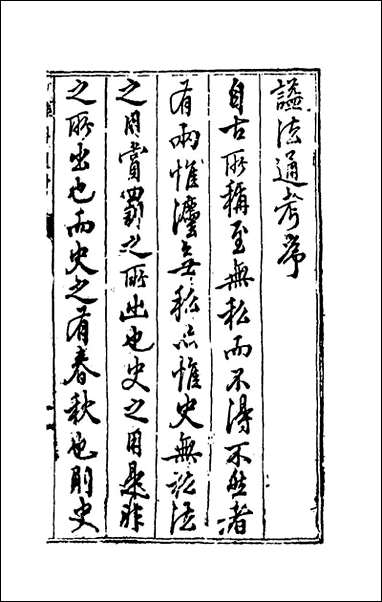 謚法通考序
自古所稱至無私而不得不然者
有兩惟灋無私亦惟史無私法
之用賞罰之所出也史之用是非
之所出也而史之有春秋也則史